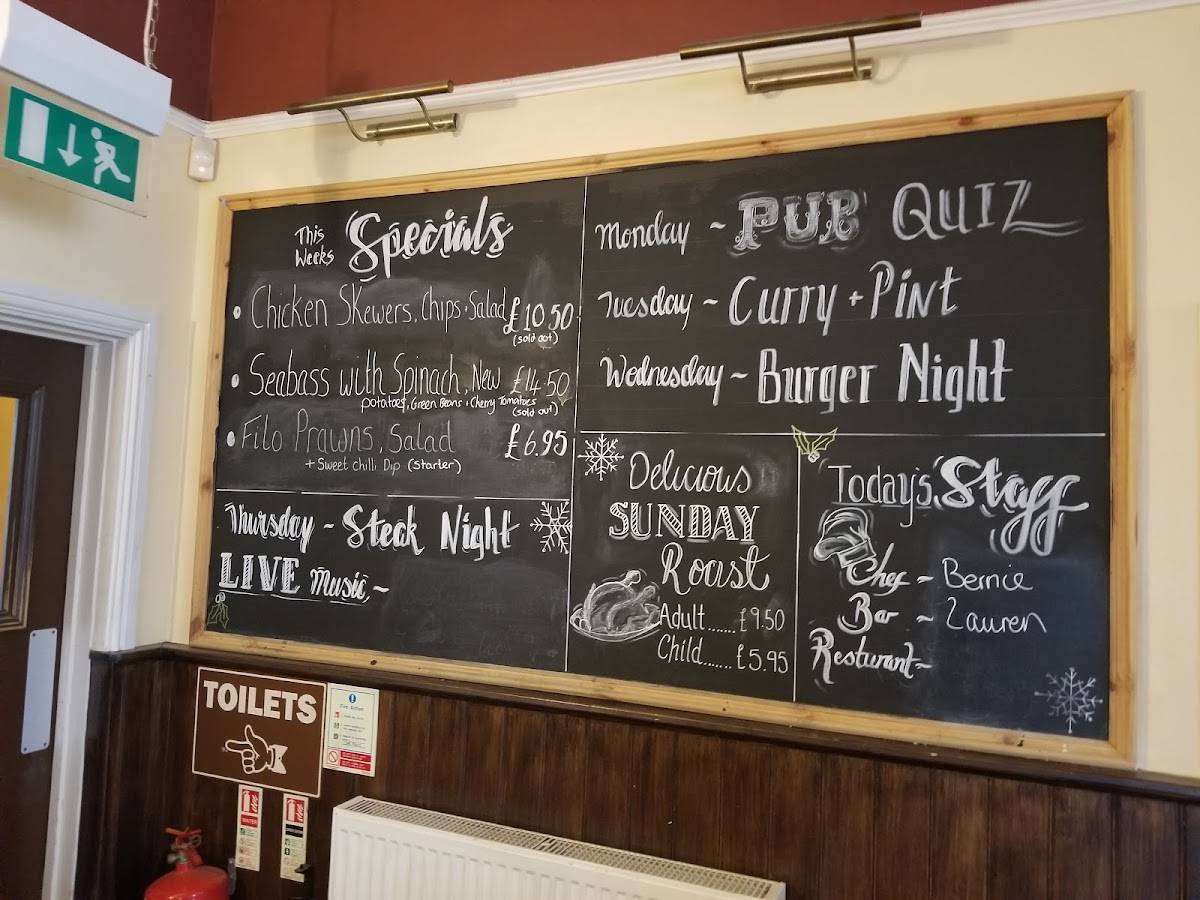 This
Weeks Specials
Chicken Skewers, Chips + Salad £10.50
(sold out)
Seabass with Spinach, New £14.50
potatoes, Green Beans + Cherry Tomatoes
(sold out)
Filo Prawns, Salad £6.95
+ Sweet chilli Dip (Starter)
Thursday ~ Steak Night
LIVE Music ~
Monday ~ PUB QUIZ
Tuesday ~ Curry + Pint
Wednesday ~ Burger Night
Delicious
SUNDAY
Roast
Adult......£9.50
Child.......£5.95
Today's Staff
Chef ~ Bernie
Bar ~ Lauren
Resturant ~
TOILETS
Fire Action
WATER